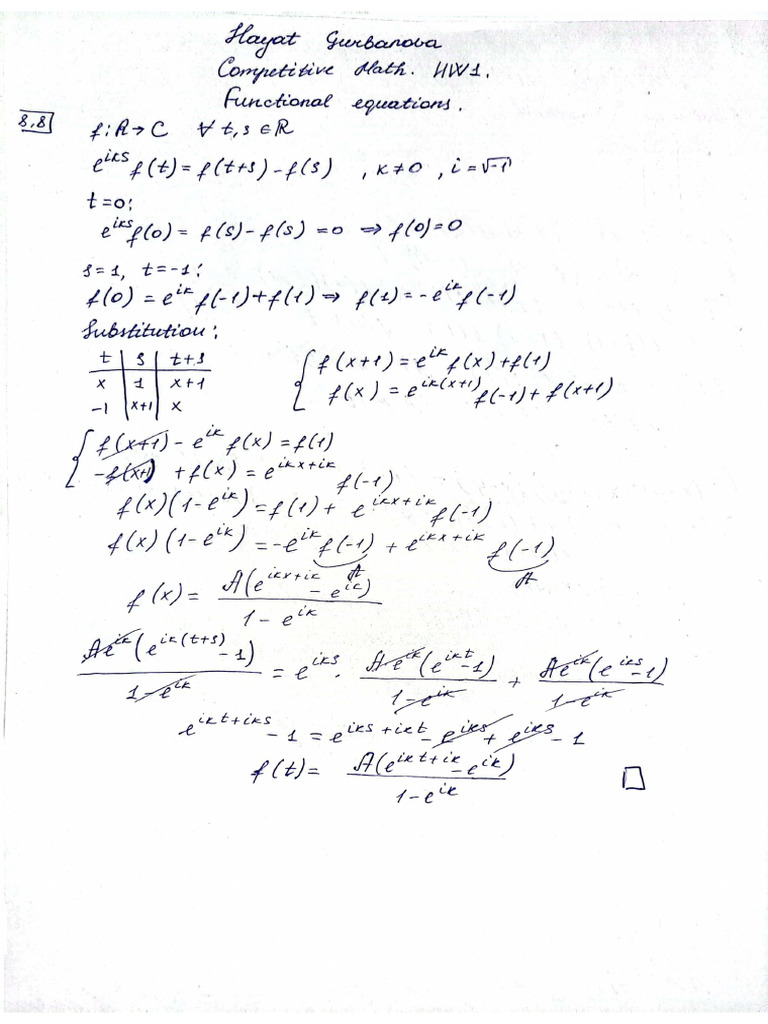 Hayat Gurbanova
Competitive Math. HW1.
Functional equations.
8.8
f: R → C ∀ t, s ∈ R
e^{iks} f(t) = f(t+s) - f(s) , k ≠ 0 , i = √-1
t = 0:
e^{iks} f(0) = f(s) - f(s) = 0 ⇒ f(0) = 0
s = 1, t = -1:
f(0) = e^{ik} f(-1) + f(1) ⇒ f(1) = -e^{ik} f(-1)
Substitution:
t | s | t+s
x | 1 | x+1
-1 | x+1 | x
{ f(x+1) = e^{ik} f(x) + f(1)
f(x) = e^{ik(x+1)} f(-1) + f(x+1)
{ f(x+1) - e^{ik} f(x) = f(1)
-f(x+1) + f(x) = e^{ikx+ik} f(-1)
f(x)(1-e^{ik}) = f(1) + e^{ikx+ik} f(-1)
f(x)(1-e^{ik}) = -e^{ik} f(-1) + e^{ikx+ik} f(-1)
A A
f(x) = A(e^{ikx+ik} - e^{ik}) / (1-e^{ik})
Ae^{ik}(e^{ik(t+s)} - 1) / (1-e^{ik}) = e^{iks} · Ae^{ik}(e^{ikt} - 1) / (1-e^{ik}) + Ae^{ik}(e^{iks} - 1) / (1-e^{ik})
e^{ikt+iks} - 1 = e^{iks+ikt} - e^{iks} + e^{iks} - 1
f(t) = A(e^{ikt+ik} - e^{ik}) / (1-e^{ik}) □